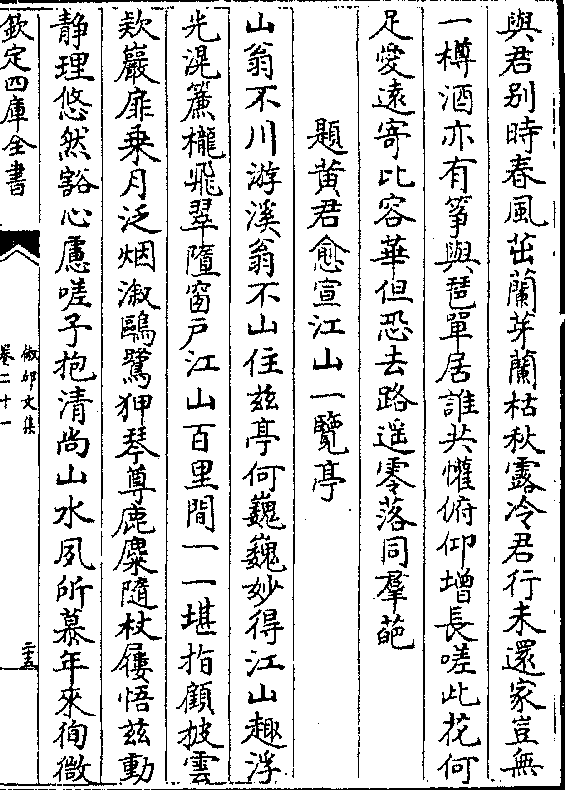 與君别時春風茁蘭芽蘭枯秋露冷君行未還家豈無
一樽酒亦有箏與琵單居誰共懽俯仰增長嗟此花何
足愛遠寄比容華但恐去路遥零落同羣葩
題黄君愈宣江山一覽亭
山翁不川游溪翁不山住兹亭何巍巍妙得江山趣浮
光滉簾櫳飛翠墮窗户江山百里間一一堪指顧披雲
欵巖扉乗月泛烟溆鷗鷺狎琴尊鹿麋隨杖屨悟兹動
静理悠然豁心慮嗟予抱清尚山水夙所慕年來徇微
欽定四庫全書
儆邱文集
卷二十一
二十五